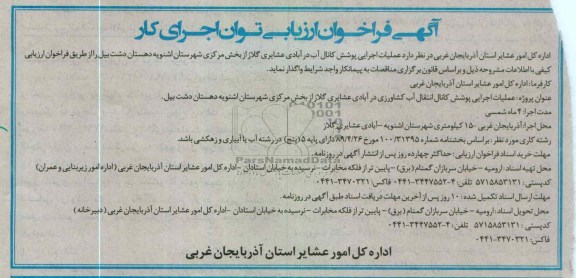 آگهی فراخوان ارزیابی توان اجرای کار
اداره کل امور عشایر استان آذربایجان غربی در نظر دارد عملیات اجرایی پوشش کانال آب در آبادی عشایری گلاز از بخش مرکزی شهرستان اشنویه دهستان دشت بیل را از طریق فراخوان ارزیابی
کیفی با اطلاعات مشروحه ذیل و براساس قانون برگزاری مناقصات به پیمانکار واجد شرایط واگذار نماید.
کارفرما: اداره کل امور عشایر استان آذربایجان غربی
عنوان پروژه: عملیات اجرایی پوشش کانال انتقال آب کشاورزی در آبادی عشایری گلاز از بخش مرکزی شهرستان اشنویه دهستان دشت بیل.
مدت اجرا: ۴ ماه شمسی
محل اجرا: آذربایجان غربی -۱۵ کیلومتری شهرستان اشنویه -آبادی عشایری گلاز
رشته کاری مورد نظر: براساس بخشنامه شماره ۱۰۰/۳۱۳۹۵ مورخ ۸۹/۴/۲۶ دارای پایه ۵(پنج) در رشته آب یا آبیاری و زهکشی باشد.
مهلت خرید اسناد فراخوان ارزیابی: حداکثر چهارده روز پس از انتشار آگهی در روزنامه.
محل تهیه اسناد: ارومیه - خیابان سربازان گمنام (برق) - پایین تر از فلکه مخابرات - نرسیده به خیابان استادان - اداره کل امور عشایر استان آذربایجان غربی (اداره امور زیربنایی و عمران)
کدپستی: ۵۷۱۵۸۵۳۱۳۱ تلفن: ۴-۳۴۴۷۵۵۲-۰۴۴۱ فاکس: ۳۴۷۰۳۲۱-۰۴۴۱
مهلت ارسال اسناد تکمیل شده: ۱۰ روز پس از آخرین مهلت دریافت اسناد طبق آگهی در روزنامه.
محل تحویل اسناد: ارومیه - خیابان سربازان گمنام (برق) - پایین تر از فلکه مخابرات - نرسیده به خیابان استادان - اداره کل امور عشایر استان آذربایجان غربی (دبیرخانه)
کدپستی: ۵۷۱۵۸۵۳۱۳۱ تلفن: ۴-۳۴۴۷۵۵۲-۰۴۴۱
فاکس: ۳۴۷۰۳۲۱-۰۴۴۱
اداره کل امور عشایر استان آذربایجان غربی
ParsNamadData